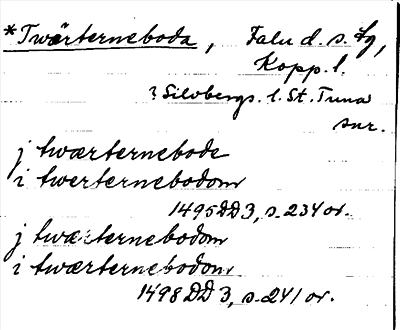 *Twärterneboda, Falu d. s. tg,
Kopp. l.
? Silvbergs l. St. Tuna
snr.
j twærternebode
i twerternebodom
1495 DD 3, s. 234 or.
j twærternebodom
i twærternebodom
1498 DD 3, s. 241 or.